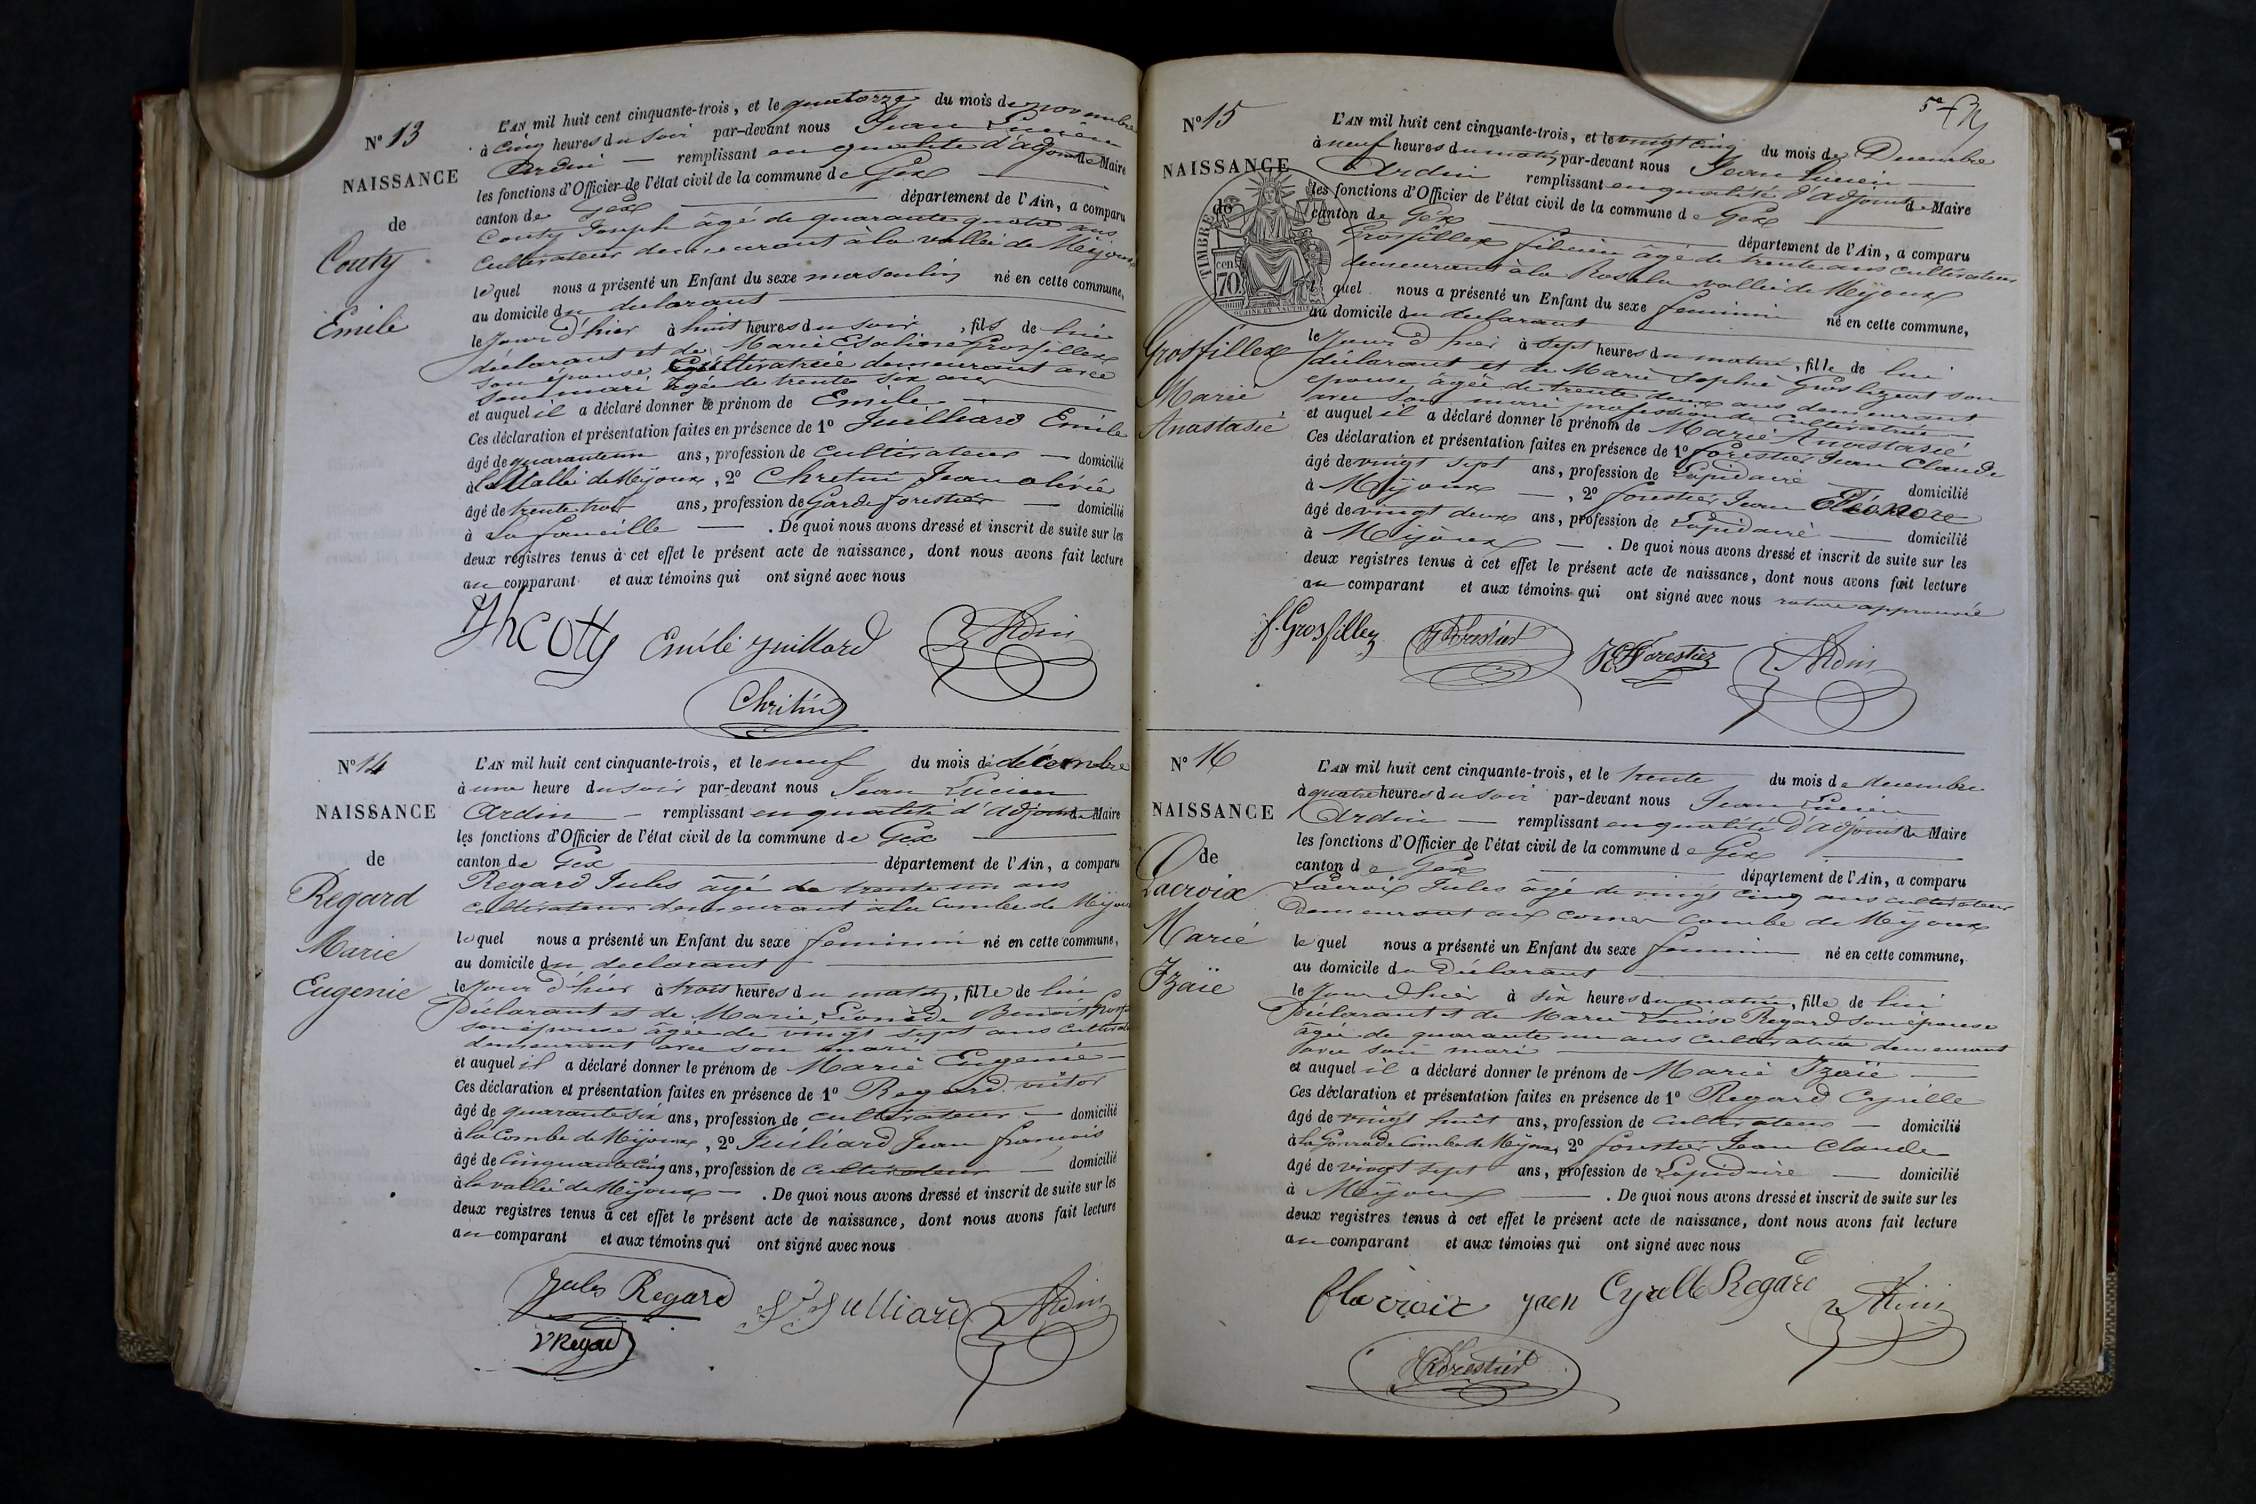 N° 13
NAISSANCE
de
Couty
Emile
L'AN mil huit cent cinquante-trois, et le quatorze du mois de novembre
à cinq heures du soir par-devant nous Jean Lucien
Ardin — remplissant en qualité d'adjoint de Maire
les fonctions d'Officier de l'état civil de la commune de Gex
canton de Gex département de l'Ain, a comparu
Couty Joseph âgé de quarante quatre ans
cultivateur demeurant à la vallée de Mijoux
lequel nous a présenté un Enfant du sexe masculin né en cette commune,
au domicile du déclarant
le jour d'hier à huit heures du soir, fils de lui
déclarant et de Marie Grosfillex
son épouse cultivatrice demeurant avec
son mari âgée de trente six ans
et auquel il a déclaré donner le prénom de Emile
Ces déclaration et présentation faites en présence de 1° Juilliard Emile
âgé de quarante un ans, profession de cultivateur — domicilié
à la Vallée de Mijoux, 2° Chretin Jean olivier
âgé de trente trois ans, profession de Garde forestier — domicilié
à La faucille — . De quoi nous avons dressé et inscrit de suite sur les
deux registres tenus à cet effet le présent acte de naissance, dont nous avons fait lecture
au comparant et aux témoins qui ont signé avec nous
Emile Juillard Ardin
Chritin
N° 14
NAISSANCE
de
Regard
Marie
Eugenie
L'AN mil huit cent cinquante-trois, et le neuf du mois de décembre
à une heure du soir par-devant nous Jean Lucien
Ardin — remplissant en qualité d'adjoint de Maire
les fonctions d'Officier de l'état civil de la commune de Gex
canton de Gex département de l'Ain, a comparu
Regard Jules âgé de trente un ans
cultivateur demeurant à la Combe de Mijoux
lequel nous a présenté un Enfant du sexe feminin né en cette commune,
au domicile du declarant
le jour d'hier à trois heures du matin, fille de lui
Déclarant et de Marie Benoit
son épouse âgée de vingt sept ans
demeurant avec son mari
et auquel il a déclaré donner le prénom de Marie Eugenie —
Ces déclaration et présentation faites en présence de 1° Regard victor
âgé de quarante six ans, profession de cultivateur — domicilié
à la Combe de Mijoux, 2° Juilliard Jean françois
âgé de Cinquante Cinq ans, profession de cultivateur — domicilié
à la vallée de Mijoux — . De quoi nous avons dressé et inscrit de suite sur les
deux registres tenus à cet effet le présent acte de naissance, dont nous avons fait lecture
au comparant et aux témoins qui ont signé avec nous
Jules Regard Julliard Ardin
V Regard
N° 15
NAISSANCE
de
TIMBRE
70
Grosfillex
Marie
Anastasie
L'AN mil huit cent cinquante-trois, et le vingt cinq du mois de Decembre
à neuf heures du matin par-devant nous Jean Lucien
Ardin remplissant en qualité d'adjoint de Maire
les fonctions d'Officier de l'état civil de la commune de Gex
canton de Gex département de l'Ain, a comparu
Grosfillex âgé de trente ans cultivateur
demeurant à la vallée de Mijoux
quel nous a présenté un Enfant du sexe feminin né en cette commune,
au domicile du declarant
le jour d'hier à sept heures du matin, fille de lui
déclarant et de Marie Sophie son
épouse, âgée de trente deux ans demeurant
avec son mari profession de cultivatrice
et auquel il a déclaré donner le prénom de Marie Anastasie
Ces déclaration et présentation faites en présence de 1° forestier Jean Claude
âgé de vingt sept ans, profession de Lapidaire — domicilié
à Mijoux — , 2° forestier Jean Eléonore
âgé de vingt deux ans, profession de Lapidaire — domicilié
à Mijoux — . De quoi nous avons dressé et inscrit de suite sur les
deux registres tenus à cet effet le présent acte de naissance, dont nous avons fait lecture
au comparant et aux témoins qui ont signé avec nous rature approuvée
f. Grosfillex Forestier Ardin
N° 16
NAISSANCE
de
Lacroix
Marie
Izaïe
L'AN mil huit cent cinquante-trois, et le trente du mois de decembre
à quatre heures du soir par-devant nous Jean Lucien
Ardin — remplissant en qualité d'adjoint de Maire
les fonctions d'Officier de l'état civil de la commune de Gex
canton de Gex département de l'Ain, a comparu
Lacroix Jules âgé de vingt cinq ans cultivateur
Demeurant aux combe de Mijoux
lequel nous a présenté un Enfant du sexe feminin né en cette commune,
au domicile du Déclarant
le jour d'hier à six heures du matin, fille de lui
Déclarant et de Marie Louise Regard son épouse
âgée de quarante un ans Cultivatrice demeurant
avec son mari
et auquel il a déclaré donner le prénom de Marie Izaïe
Ces déclaration et présentation faites en présence de 1° Regard Cyrille
âgé de vingt huit ans, profession de Cultivateur — domicilié
à la Combe de Mijoux, 2° forestier Jean Claude
âgé de vingt sept ans, profession de Lapidaire — domicilié
à Mijoux — . De quoi nous avons dressé et inscrit de suite sur les
deux registres tenus à cet effet le présent acte de naissance, dont nous avons fait lecture
au comparant et aux témoins qui ont signé avec nous
Lacroix Cyrille Regard Ardin
Forestier